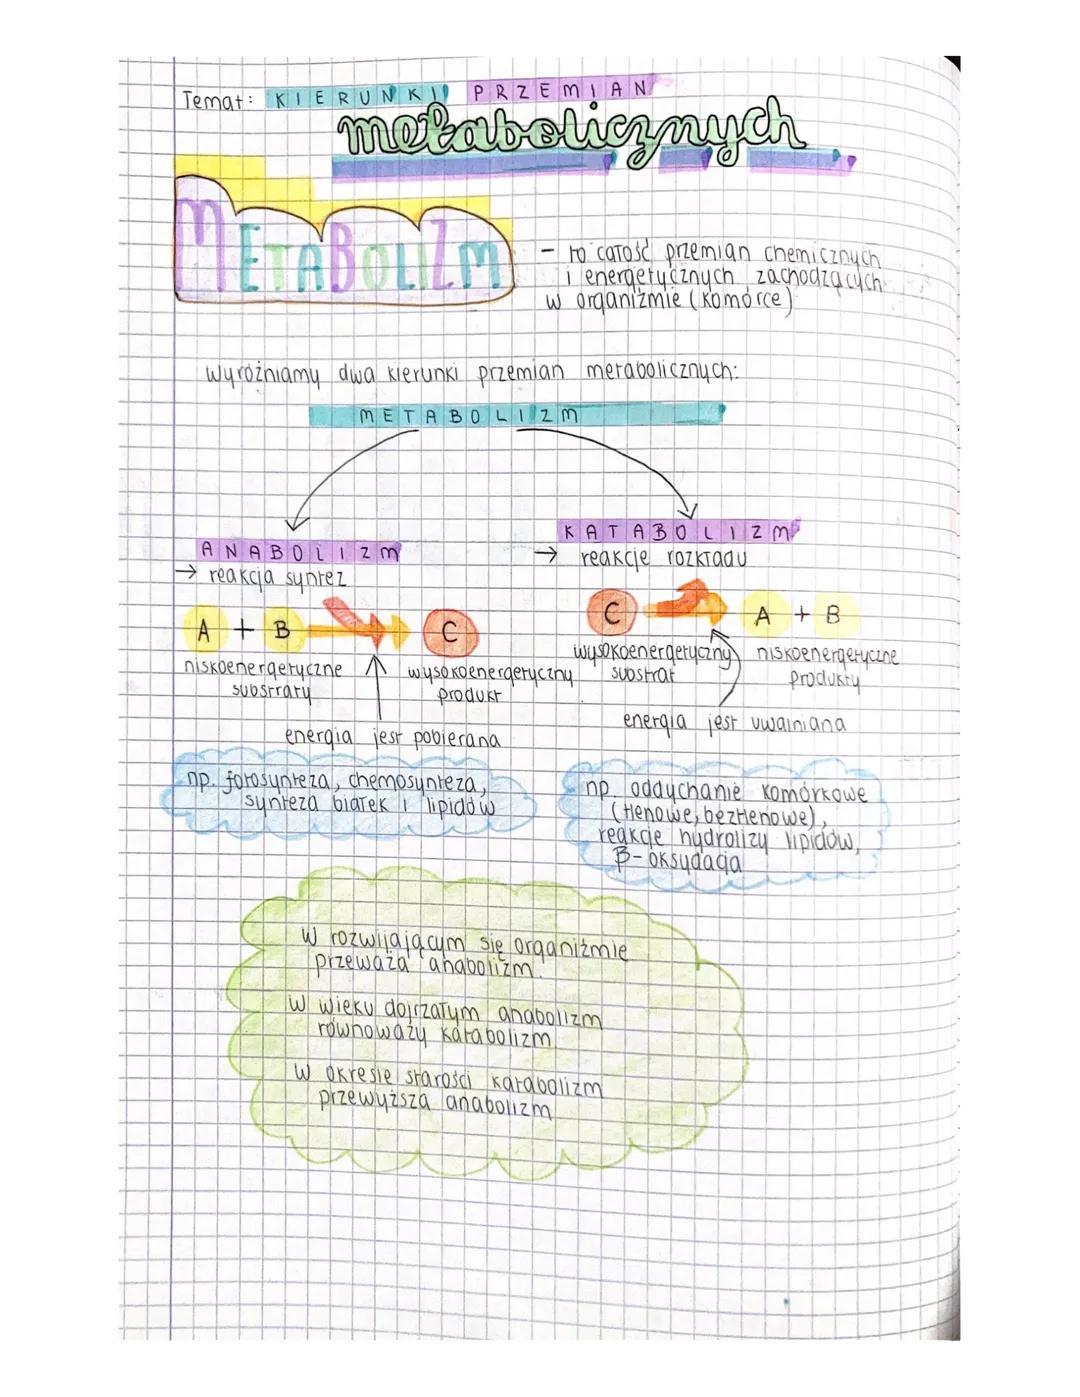 Temat: KIERUNKI PRZEMIAN
metabolicznych
METABOLIZM
- to całość przemian chemicznych
i energetycznych zachodzących
w organiźmie (komórce)
Wyróżniamy dwa kierunki przemian metabolicznych:
METABOLIZM
ANABOLIZM
→ reakcja syntez
A + B → C
niskoenergetyczne
substraty
wysokoenergetyczny
produkt
energia jest pobierana
np. fotosynteza, chemosynteza,
synteza białek i lipidów
KATABOLIZM
→ reakcje rozkładu
C → A + B
wysokoenergetyczny
substrat
niskoenergetyczne
produkty
energia jest uwalniana
np. oddychanie komórkowe
(tlenowe, beztlenowe),
reakcje hydrolizy lipidów,
β-oksydacja
W rozwijającym się organiźmie
przeważa anabolizm.
W wieku dojrzałym anabolizm
równoważy katabolizm.
W okresie starości katabolizm
przewyższa anabolizm